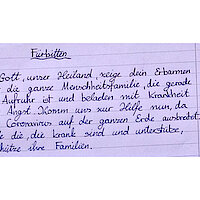 Fürbitten
Gott, unser Heiland, zeige dein Erbarmen
die ganze Menschheitsfamilie, die gerade
Aufruhr ist und beladen mit Krankheit
Angst. Komm uns zur Hilfe nun, da
Coronavirus auf der ganzen Erde ausbreitet.
die, die krank sind und unterstütze,
ihre Familien.